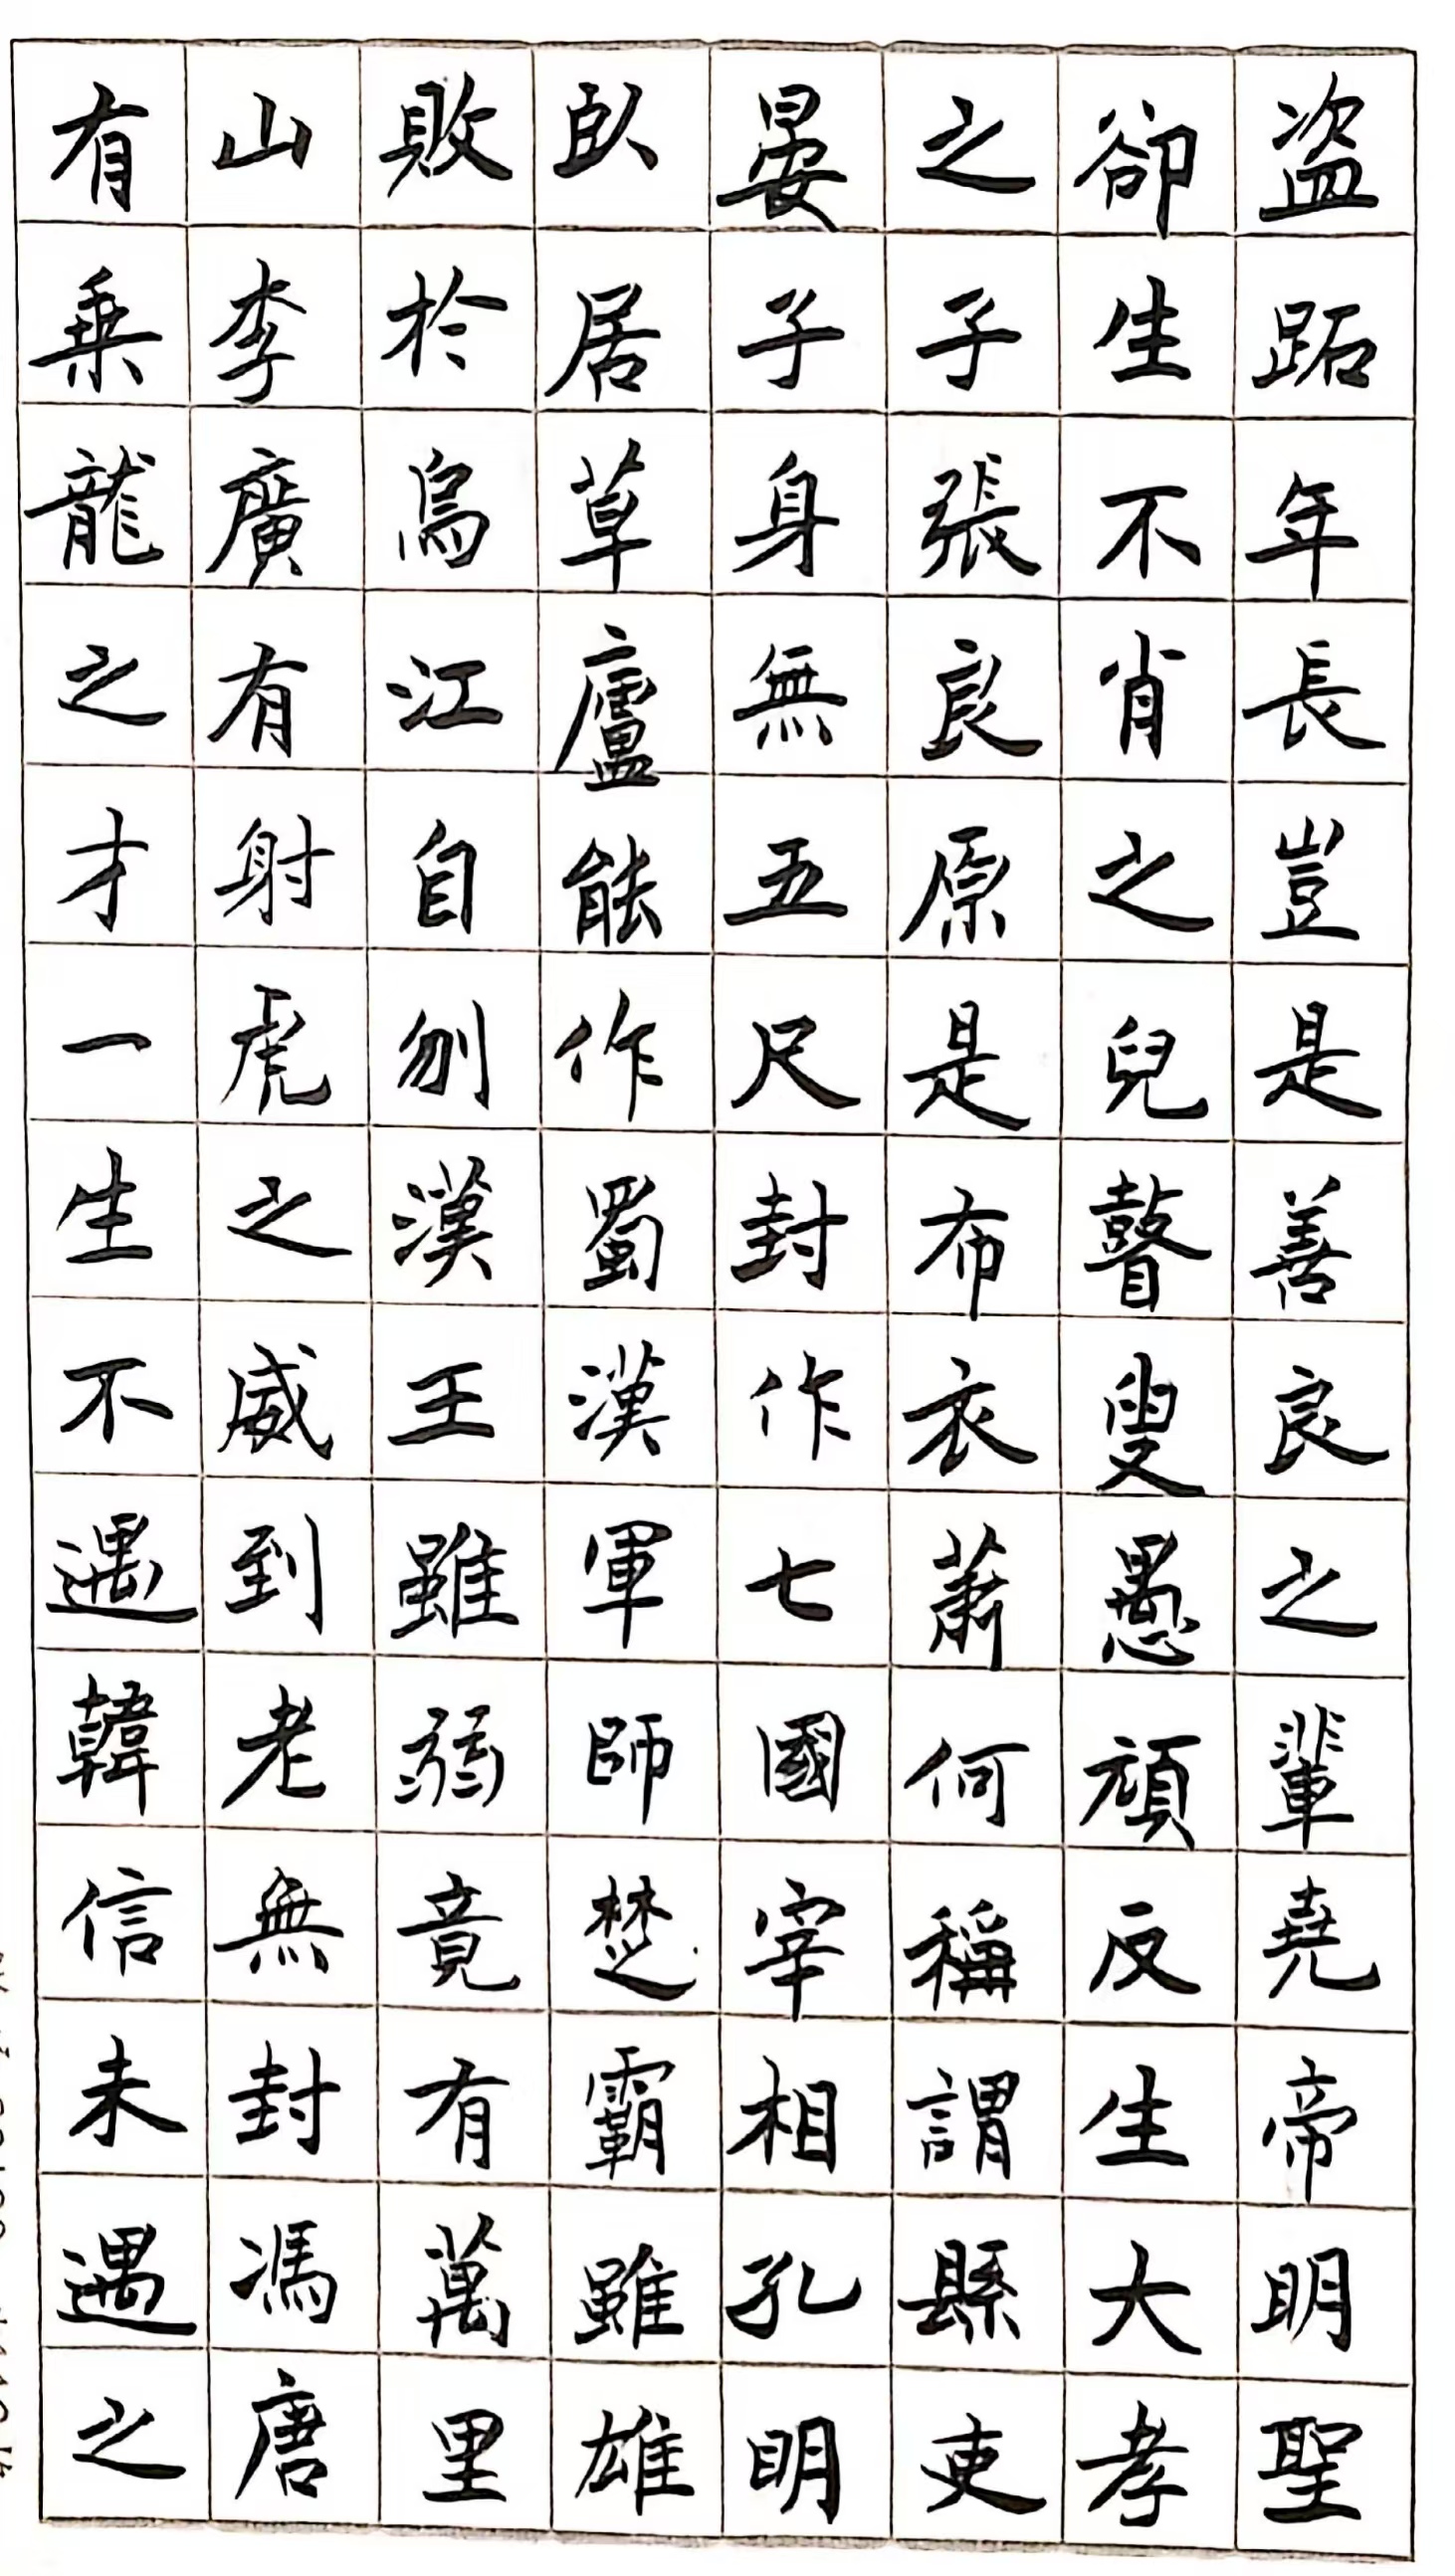 盜跖年長豈是善良之輩堯帝明聖
卻生不肖之兒瞽叟愚頑反生大孝
之子張良原是布衣蕭何稱謂縣吏
晏子身無五尺封作七國宰相孔明
臥居草廬能作蜀漢軍師楚霸雖雄
敗於烏江自刎漢王雖弱竟有萬里
山李廣有射虎之威到老無封馮唐
有乘龍之才一生不遇韓信未遇之